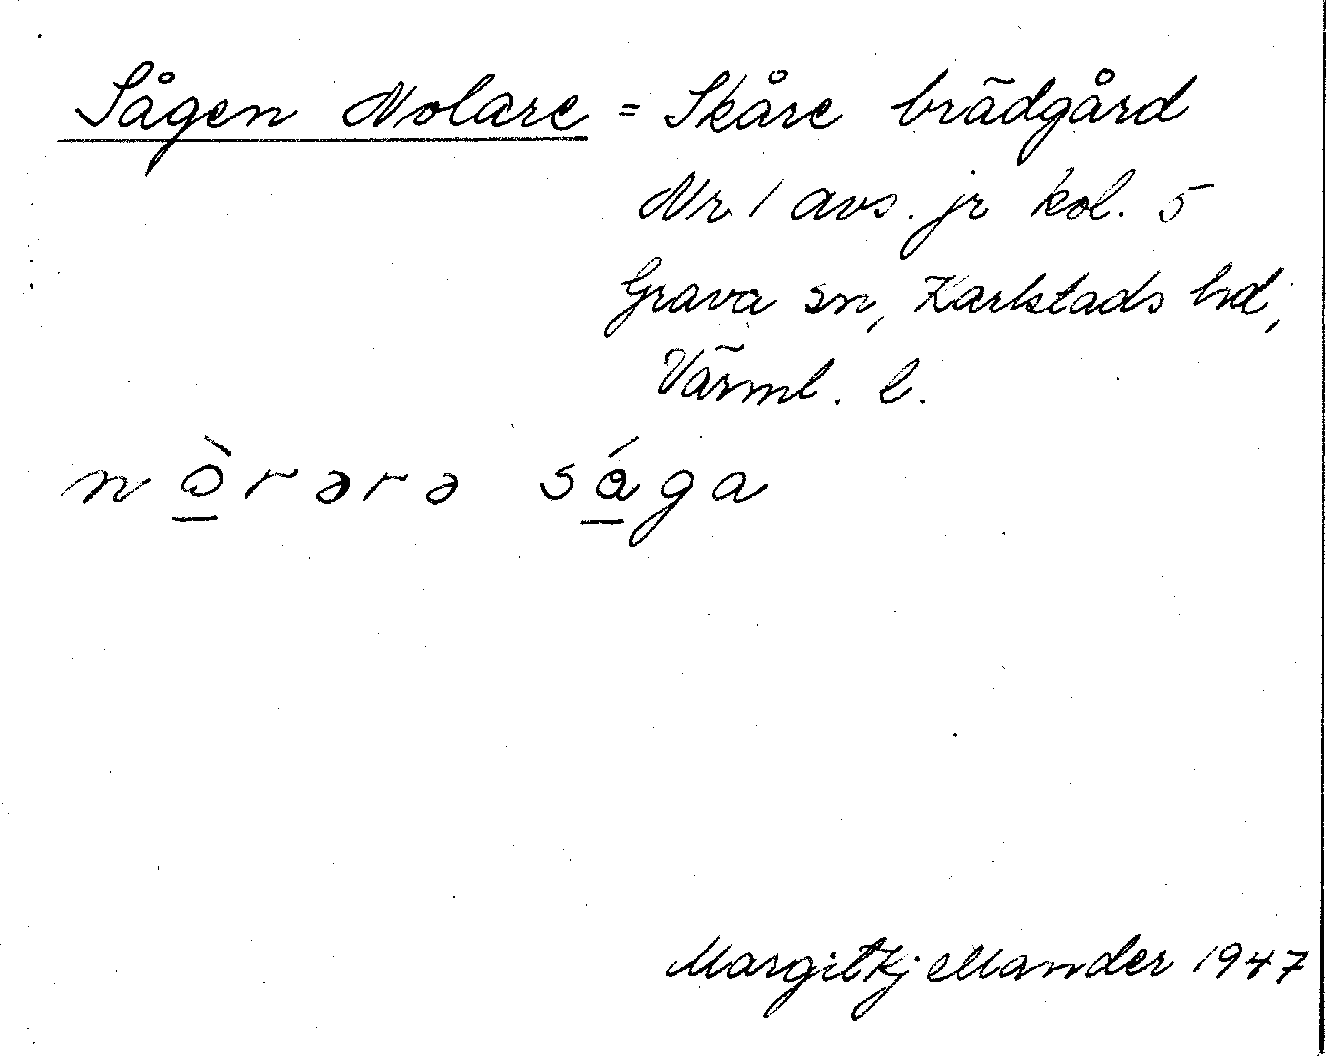 Sågen Nolare = Skåre brädgård
Nr 1 avs. jr kol. 5
Grava sn, Karlstads hd,
Värml. l.
nɔ̠̀rərə sá̠ga
Margit Kjellander 1947